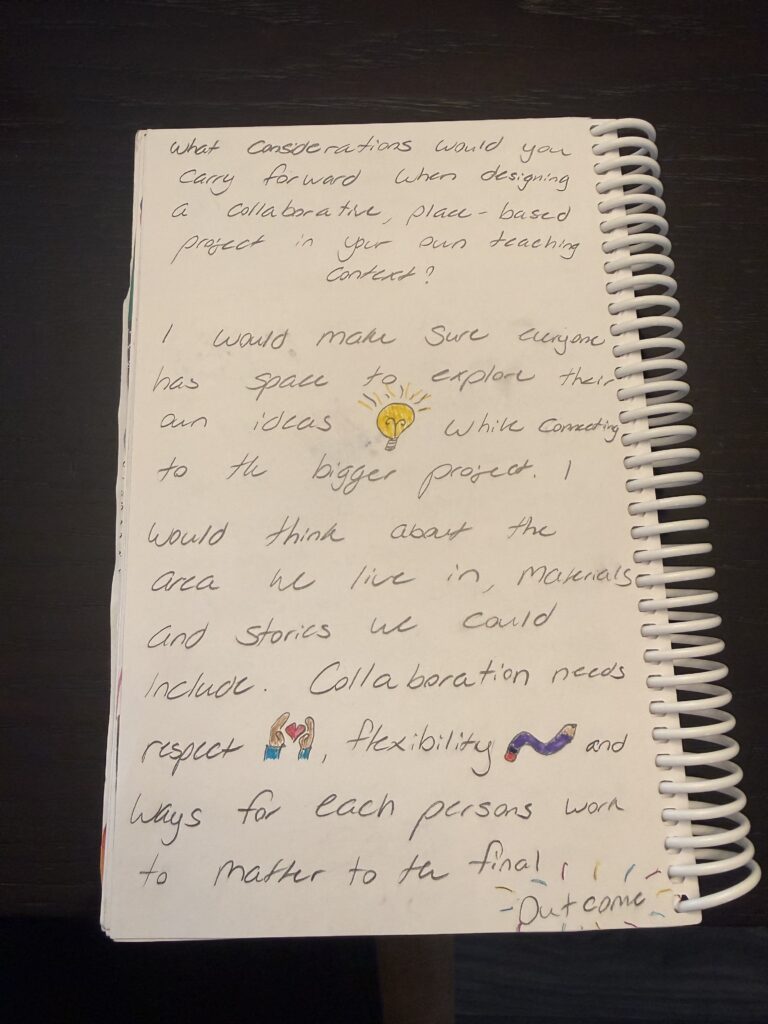 What considerations would you
carry forward when designing
a collaborative, place-based
project in your own teaching
context?
I would make sure everyone
has space to explore their
own ideas while connecting
to the bigger project. I
would think about the
area we live in, materials
and stories we could
include. Collaboration needs
respect, flexibility and
ways for each persons work
to matter to the final
outcome